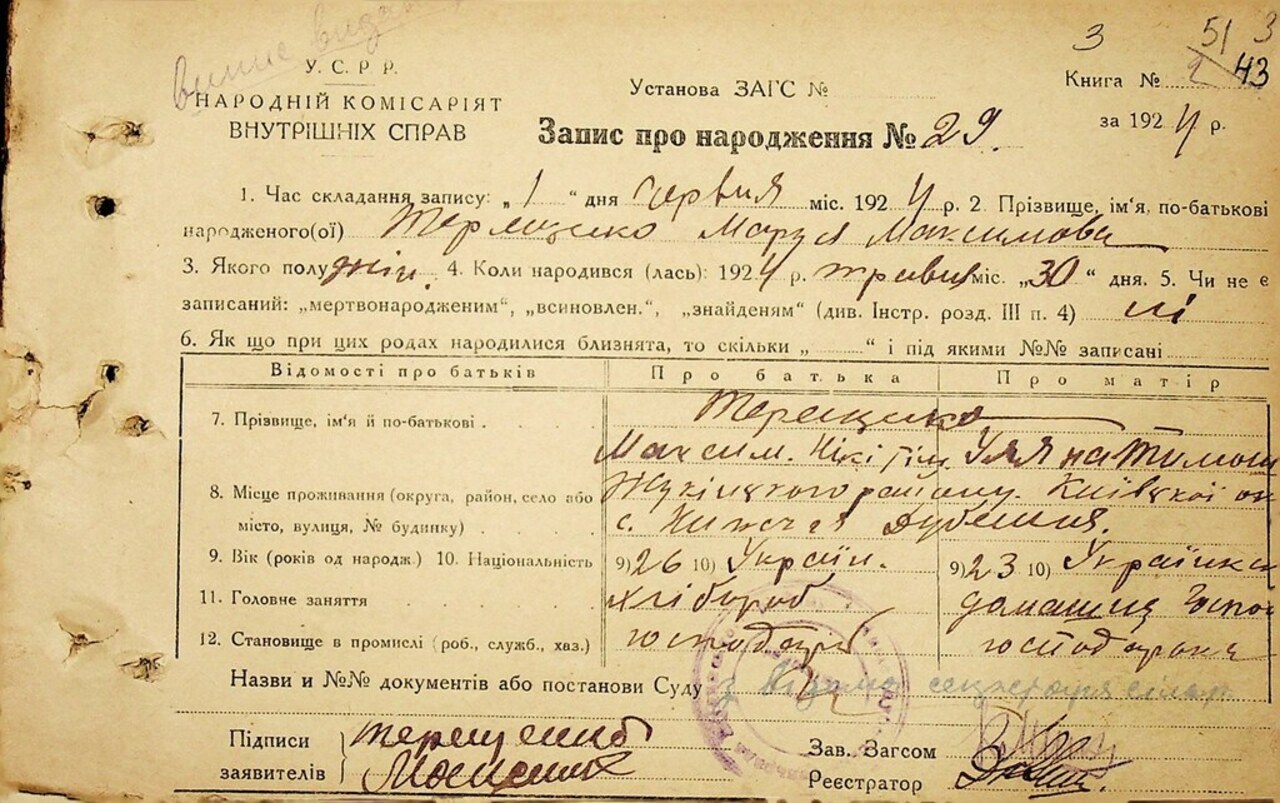 3 51 3
У. С. Р. Р.
НАРОДНІЙ КОМІСАРІЯТ
ВНУТРІШНІХ СПРАВ
Установа ЗАГС №
Книга № 2 43
Запис про народження № 29.
за 1924 р.
1. Час складання запису: „1“ дня Червня міс. 1924 р. 2 Прізвище, ім'я, по-батькові
народженого(ої) Терещенко Маруся Максимова
3. Якого полу жін. 4. Коли народився (лась): 1924 р. травня міс. „30“ дня. 5. Чи не є
записаний: „мертвонародженим“, „всиновлен.“, „знайденям“ (див. Інстр. розд. III п. 4) ні
6. Як що при цих родах народилися близнята, то скільки „ “ і під якими №№ записані
Відомості про батьків Про батька Про матір
7. Прізвище, ім'я й по-батькові Терещенко
Максим. Нікітін Уляна Тимош
8. Місце проживання (округа, район, село або району. Київської ок
місто, вулиця, № будинку) с. Дубешня.
9. Вік (років од народж.) 10. Національність 9) 26 10) Україн. 9) 23 10) Українка
11. Головне заняття хлібороб домашнє госпо
12. Становище в промислі (роб., служб., хаз.) господарів господарка
Назви и №№ документів або постанови Суду з секретаря
Підписи Терещенко
заявителів
Зав. Загсом
Реєстратор